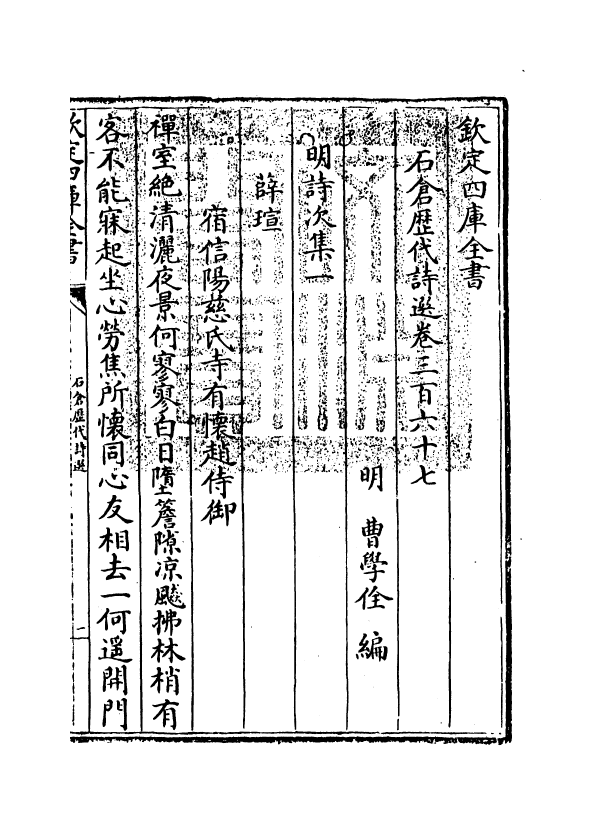 欽定四庫全書
石倉歷代詩選卷三百六十七
明 曹學佺 編
明詩次集一
薛瑄
宿信陽慈氏寺有懷趙侍御
禪室絶清灑夜景何寥寥白日墮簷隙凉飈拂林梢有
客不能寐起坐心勞焦所懷同心友相去一何遥開門
欽定四庫全書
石倉歷代詩選
一